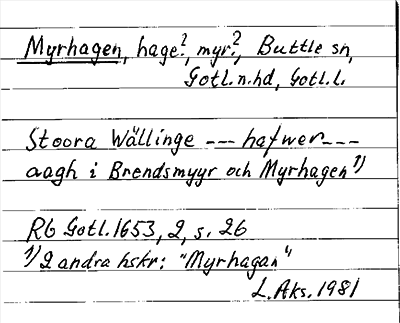 Myrhagen, hage?, myr?, Buttle sn,
Gotl. n. hd, Gotl. l.
Stoora Wällinge --- hafwer ---
aagh i Brendsmyyr och Myrhagen 1)
Rb Gotl. 1653, 2, s. 26
1) 2 andra hskr: "Myrhagan"
L. Aks. 1981